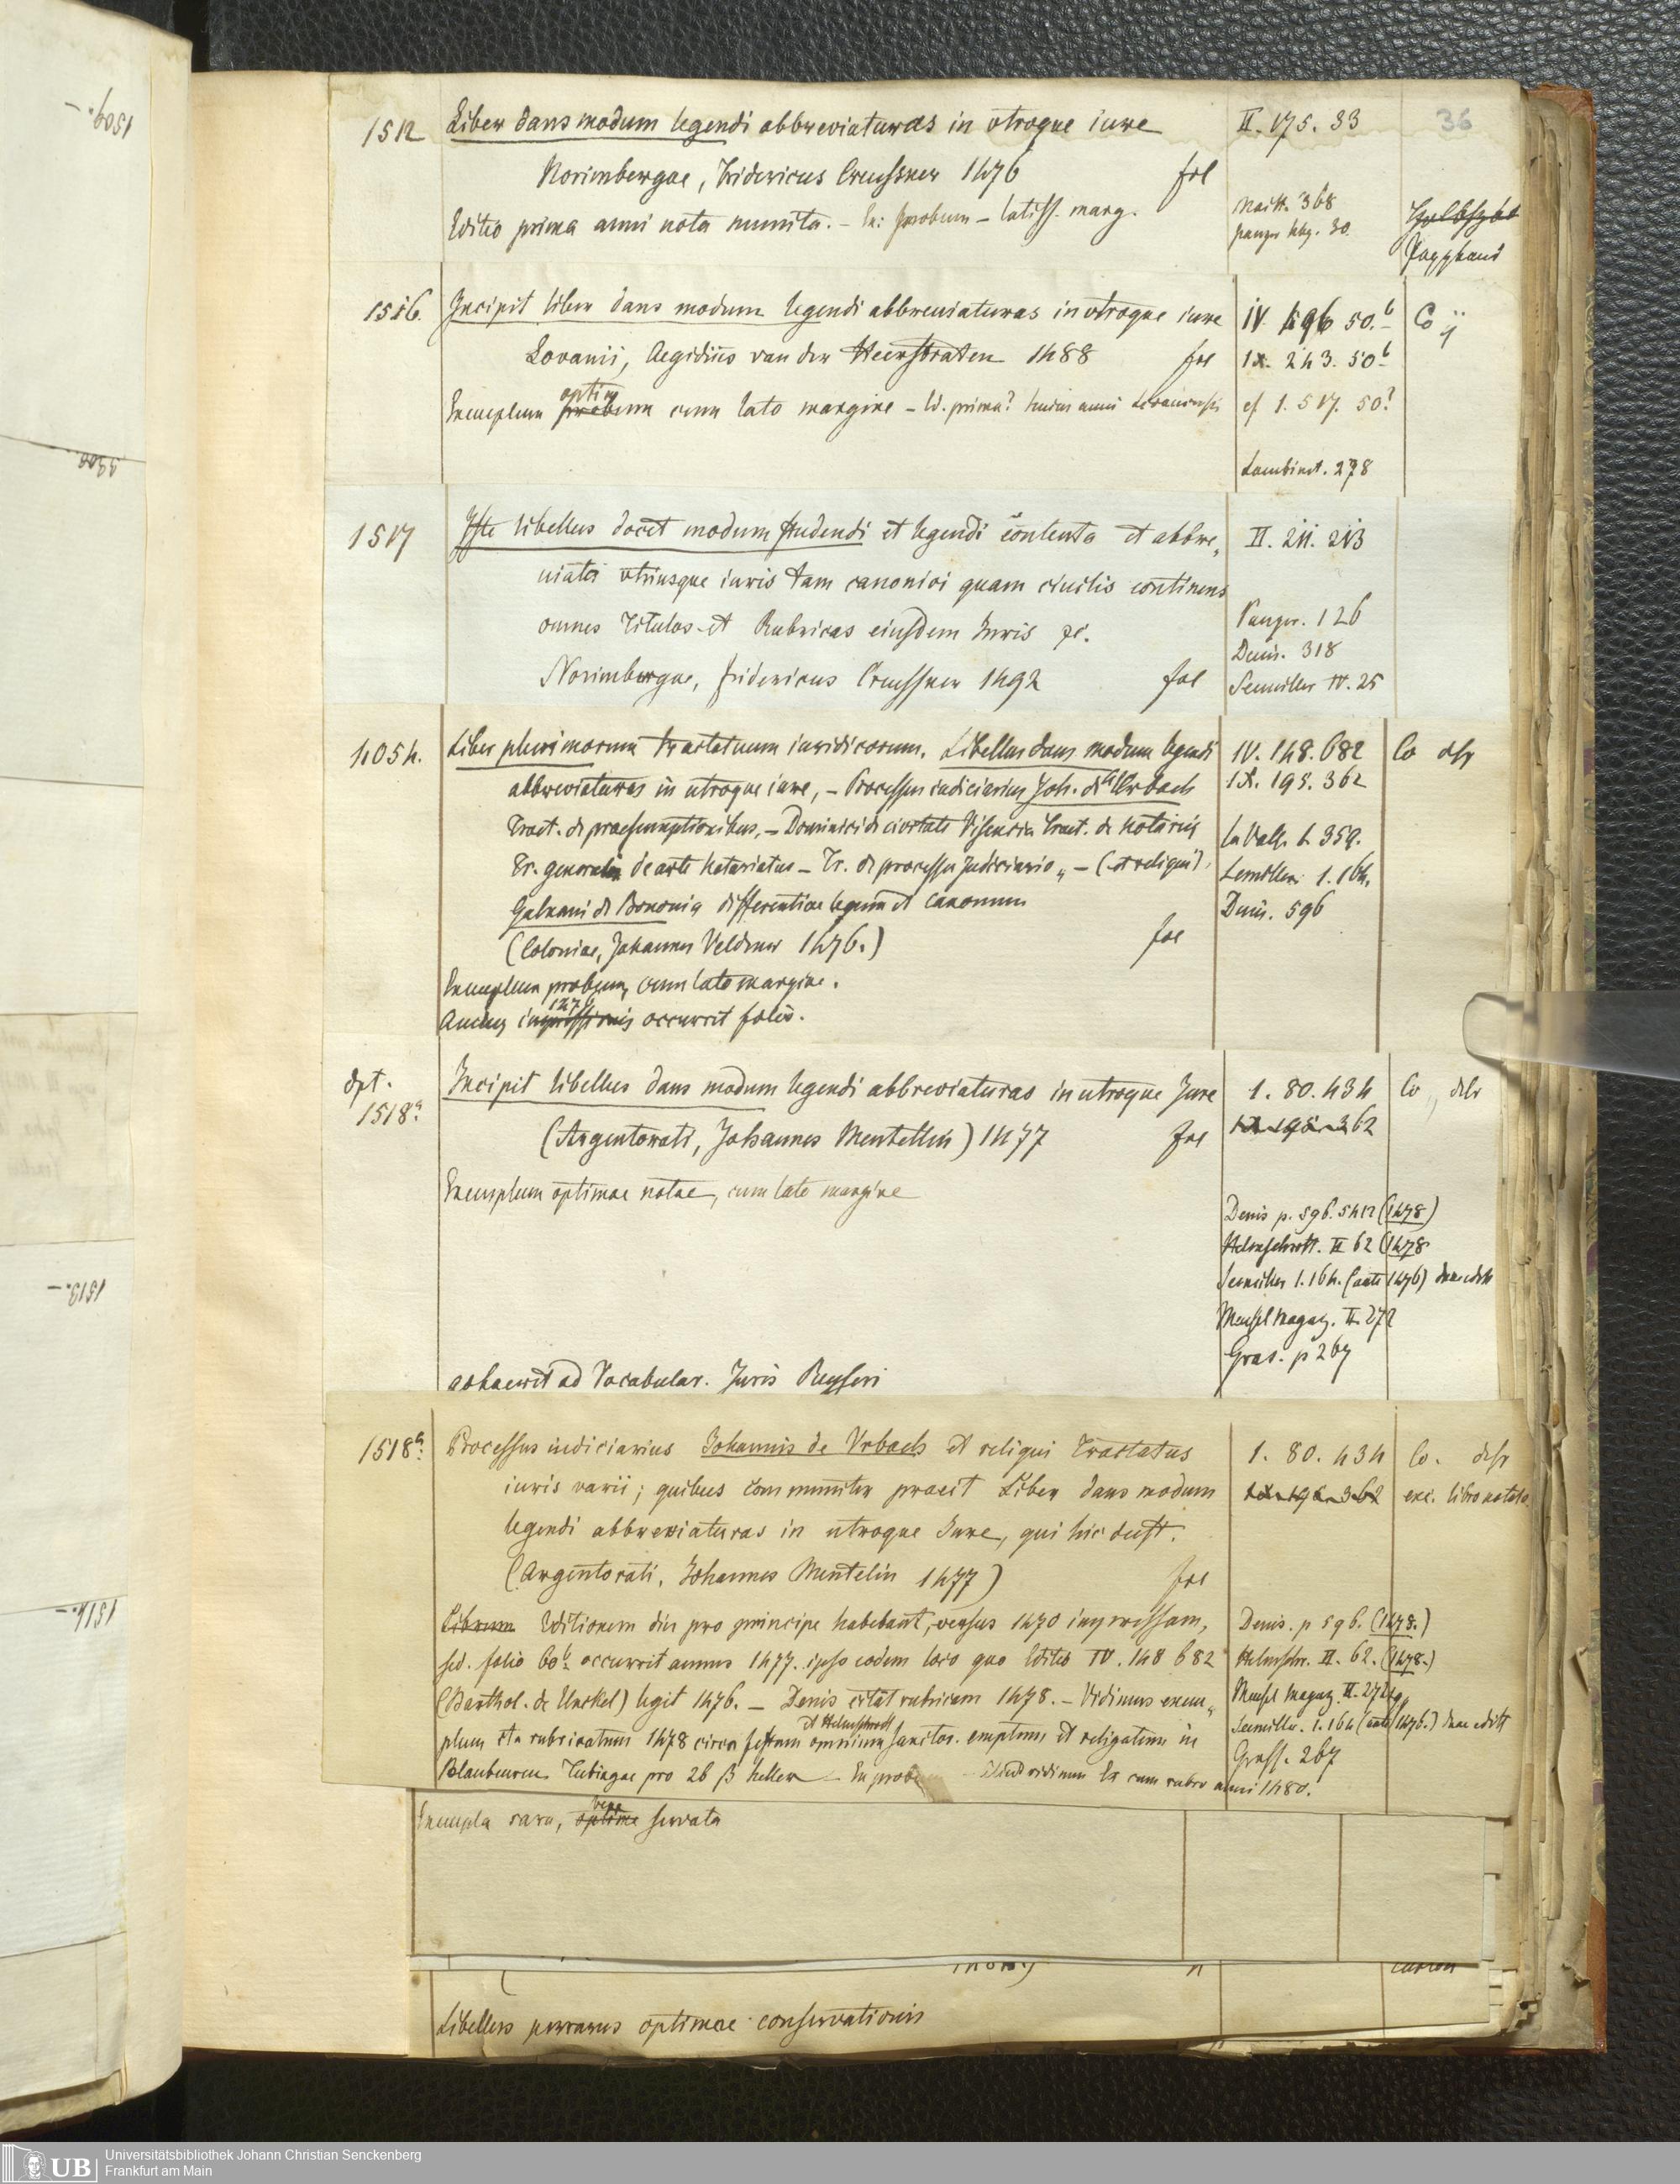 1509.-
1513.-
1514.-
36
1512 Liber dans modum legendi abbreviaturas in utroque iure II. 175. 33
Norimbergae, Fridericus Creussner 1476 fol
Editio prima anni nota munita. - Ex: probum - latiss. marg. Maitt. 368
panzer 30. Pappband
1516. Incipit liber dans modum legendi abbreuiaturas in utroque iure IV 496 50.b Co
Lovanii, Aegidius van der Heerstraten 1488 fol IX. 243. 50b
Exemplum optim probum cum lato margine - Ed. prima? huius anni Lovaniensis cf 1. 517. 50?
Lambinet. 278
1517 Iste libellus docet modum studendi et legendi contenta et abbre„ II. 211. 213
uiata utriusque iuris tam canonici quam ciuilis continens
omnes Titulos et Rubricas eiusdem Iuris Panzer. 126
Denis. 318
Norimbergae, fridericus Creussner 1492 fol Seemiller IV. 25
4054. Liber plurimorum tractatuum iuridicorum. Libellus dans modum legendi IV. 148. 682 Co
abbreviaturas in utroque iure, - Processus iudiciarius Joh. de Urbach IX. 195. 362
Tract. de praesumptionibus, - Dominici de civitate Visentia Tract. de notariis La Vall. 359.
Tr. generalis de arte Notariatus - Tr. de processu Judiciario „ - (et reliqui) Semiller 1. 164.
Galuani de Bononia differentiae legum et canonum Denis. 596
(Coloniae, Johannes Veldener 1476.) fol
Exemplum probum, cum lato margine.
Annus 1476 impressionis occurrit folio.
dpt.
1518a Incipit libellus dans modum legendi abbreviaturas in utroque Jure 1. 80. 434 Co
(Argentorati, Johannes Mentellin) 1477 fol IX 195. 362
Exemplum optimae notae, cum lato margine
Denis p. 596. 5412 (1478)
Helmschrott. II 62 (1478
Seemiller 1. 164. (ante 1476)
Meusel Magaz. II. 272
Gras. p 267
adhaeret ad Vocabular. Juris Reyseri
1518b. Processus iudiciarius Johannis de Vrbach et reliqui Tractatus 1. 80. 434 Co.
iuris varii; quibus communiter praeit Liber dans modum IX. 195. 362 exc. libro notato.
legendi abbreviaturas in utroque Iure, qui hic deest.
(Argentorati, Johannes Mentelin 1477) fol
Librum Editionem diu pro principe habebant, versus 1470 impressam, Denis. p 596. (1478.)
sed. folio 60b occurrit annus 1477. ipso eodem loco quo Editio IV. 148 682 Helmschr. II. 62. (1478.)
(Barthol. de Unckel) legit 1476. - Denis citat rubricam 1478. - Vidimus exem„ Meusel Magaz. II. 272
et Helmschrott
plum ita rubricatum 1478 circa festum omnium Sanctor. emptum et religatum in Seemiller. 1. 164 (ante 1476.)
Blaubeuren Tubingae pro 26 β heller - Ex prob Aliud vidimus cum rubro anni 1480. Grass. 267
Exempla rara, bene optime servata
Libellus perrarus optimae conservationis
Universitätsbibliothek Johann Christian Senckenberg
Frankfurt am Main
UB